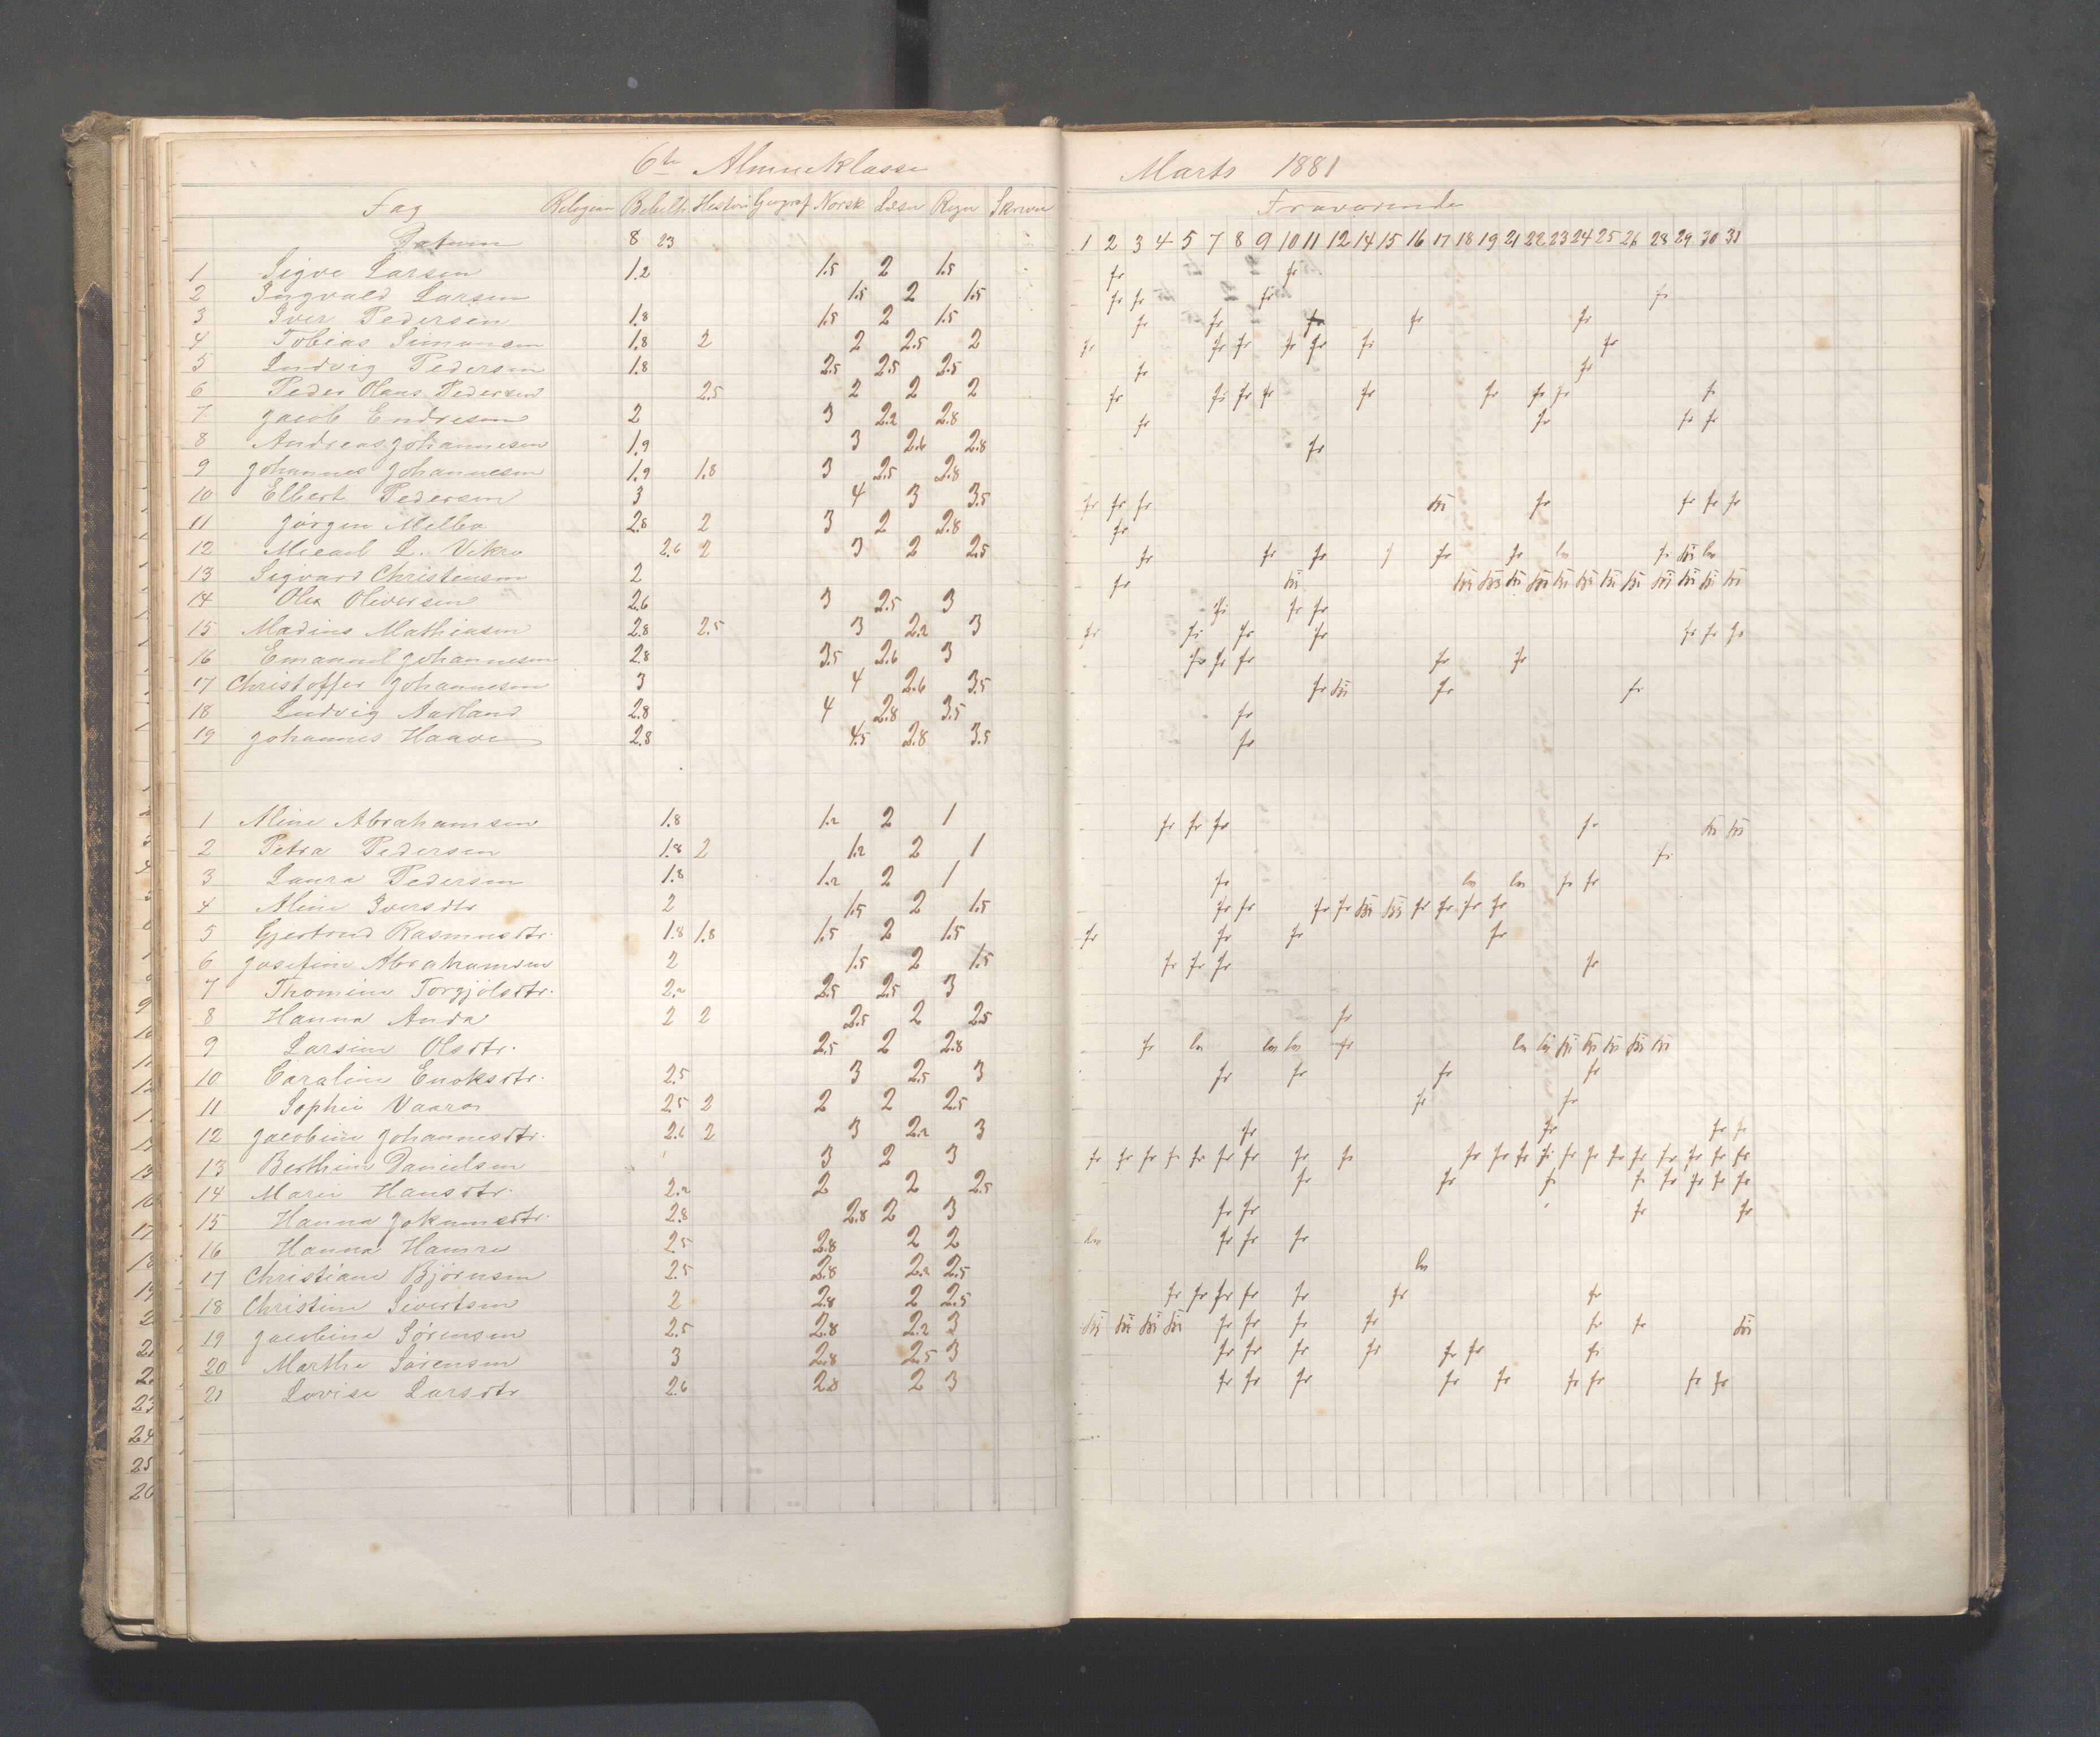 6te Almueklasse
Fag Religion Bibelh. Histori Geograf Norsk Læsn Regn Skrivn
Datum 8 23
1 Sigve Larsen 1.2 1.5 2 1.5
2 Ingvald Larsen 1.5 2 1.5
3 Iver Pedersen 1.8 1.5 2 1.5
4 Tobias Simonsen 1.8 2 2 2.5 2
5 Ludvig Pedersen 1.8 2.5 2.5 2.5
6 Peder Olaus Pedersen 2.5 2 2 2
7 Jacob Endresen 2 3 2.2 2.8
8 Andreas Johannesen 1.9 3 2.6 2.8
9 Johannes Johannesen 1.9 1.8 3 2.5 2.8
10 Elbert Pedersen 3 4 3 3.5
11 Jørgen Melbø 2.8 2 3 2 2.8
12 Micael L. Vikre 2.6 2 3 2 2.5
13 Sigvard Christensen 2
14 Ole Oliversen 2.6 3 2.5 3
15 Madius Mathiasen 2.8 2.5 3 2.2 3
16 Emanuel Johannesen 2.8 3.5 2.6 3
17 Christoffer Johannesen 3 4 2.6 3.5
18 Ludvig Aarland 2.8 4 2.8 3.5
19 Johannes Haave 2.8 4.5 2.8 3.5
1 Aline Abrahamsen 1.8 1.2 2 1
2 Petra Pedersen 1.8 2 1.2 2 1
3 Laura Pedersen 1.8 1.2 2 1
4 Aline Iversdtr 2 1.5 2 1.5
5 Gjertrud Rasmusdtr. 1.8 1.8 1.5 2 1.5
6 Josefine Abrahamsen 2 1.5 2 1.5
7 Thomine Torgjølsdtr. 2.2 2.5 2.5 3
8 Hanna Anda 2 2 2.5 2 2.5
9 Larsine Olsdtr. 2.5 2 2.8
10 Caroline Enoksdtr. 2.5 3 2.5 3
11 Sophie Vaara 2.5 2 2 2 2.5
12 Jacobine Johannesdtr. 2.6 2 3 2.2 3
13 Berthine Danielsen 3 2 3
14 Marie Hansdtr. 2.2 2 2 2.5
15 Hanna Jokumsdtr. 2.8 2.8 2 3
16 Hanna Hamre 2.5 2.8 2 2
17 Christiane Bjørnsen 2.5 2.8 2.2 2.5
18 Christine Sivertsen 2 2.8 2 2.5
19 Jacobine Sørensen 2.5 2.8 2.2 3
20 Marthe Sørensen 3 2.8 2.5 3
21 Lovise Larsdtr 2.6 2.8 2 3
23
24
25
26
Marts 1881
Fraværende
1 2 3 4 5 7 8 9 10 11 12 14 15 16 17 18 19 21 22 23 24 25 26 28 29 30 31
fr fr
fr fr fr fr
fr fr fr fr fr
fr fr fr fr fr fr fr
fr fr
fr fr fr fr fr fr fr fr fr
fr fr fr fr
fr
fr fr fr fr fr fr fr
fr
fr fr fr fr fr fr
fr
fr fr fr
fr fr fr fr fr fr fr
fr fr fr fr fr
fr fr fr
fr
fr
fr fr fr fr
fr
fr fr fr
fr fr fr fr fr fr fr fr
fr fr fr fr
fr fr fr fr
fr
fr fr
fr fr fr fr
fr fr
fr fr fr fr
fr fr fr fr fr fr fr fr fr fr fr fr fr fr fr fr fr fr fr fr fr
fr fr fr fr fr fr fr fr
fr fr fr fr
fr fr fr
fr fr fr fr fr fr fr
fr fr fr fr fr fr
fr fr fr fr fr fr fr
fr fr fr fr fr fr fr fr fr